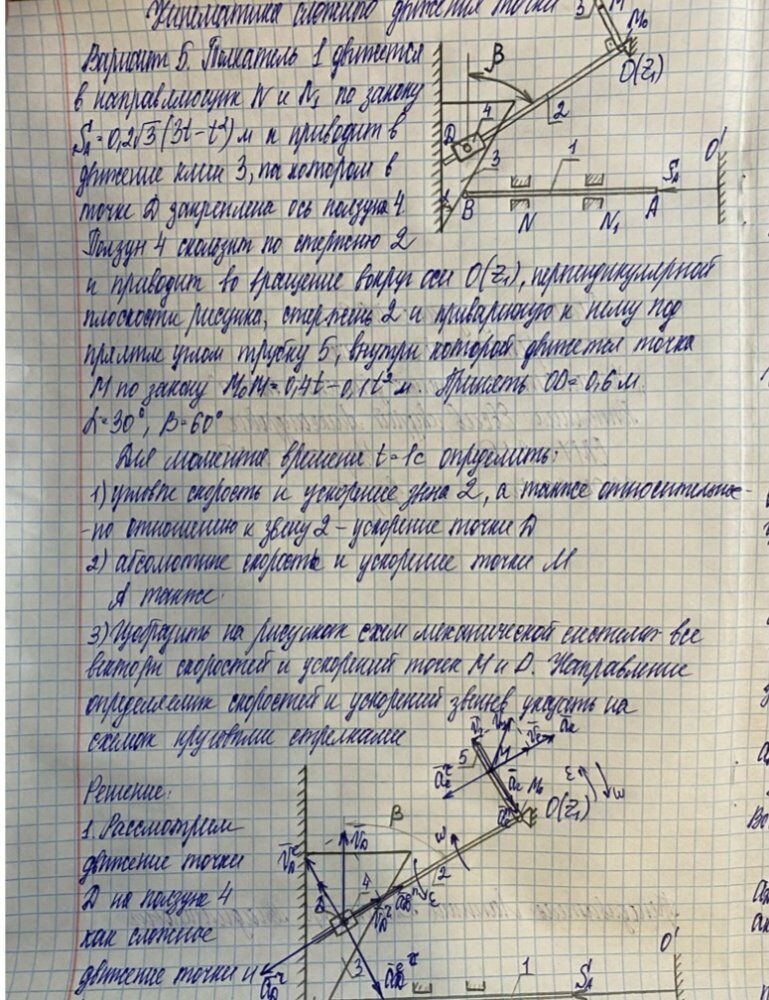 Кинематика сложного движения точки
Вариант 5. Толкатель 1 движется
в направляющих N и N₁ по закону
S_A = 0,2√3(3t - t²) м и приводит в
движение клин 3, на котором в
точке D закреплена ось ползуна 4
Ползун 4 скользит по стержню 2
и приводит во вращение вокруг оси O(z₁), перпендикулярной
плоскости рисунка, стержень 2 и приваренную к нему под
прямым углом трубку 5, внутри которой движется точка
M по закону M₀M = 0,4t - 0,1t² м. Принять OD = 0,6 м.
α = 30°, β = 60°
Для момента времени t = 1c определить:
1) угловые скорость и ускорение звена 2, а также относительное
- по отношению к звену 2 - ускорение точки D
2) абсолютные скорость и ускорение точки M
А также:
3) Изобразить на рисунках схем механической системы все
векторы скоростей и ускорений точек M и D. Направление
определяемых скоростей и ускорений звеньев указать на
схемах круговыми стрелками
Решение:
1. Рассмотрим
движение точки
D на ползуне 4
как сложное
движение точки и
5
M
M₀
O(z₁)
β
2
4
D
3
α
B
N
1
N₁
A
S_A
O'
5
M
M₀
O(z₁)
ε
ω
β
ω
2
ε
4
3
1
S_A
O'